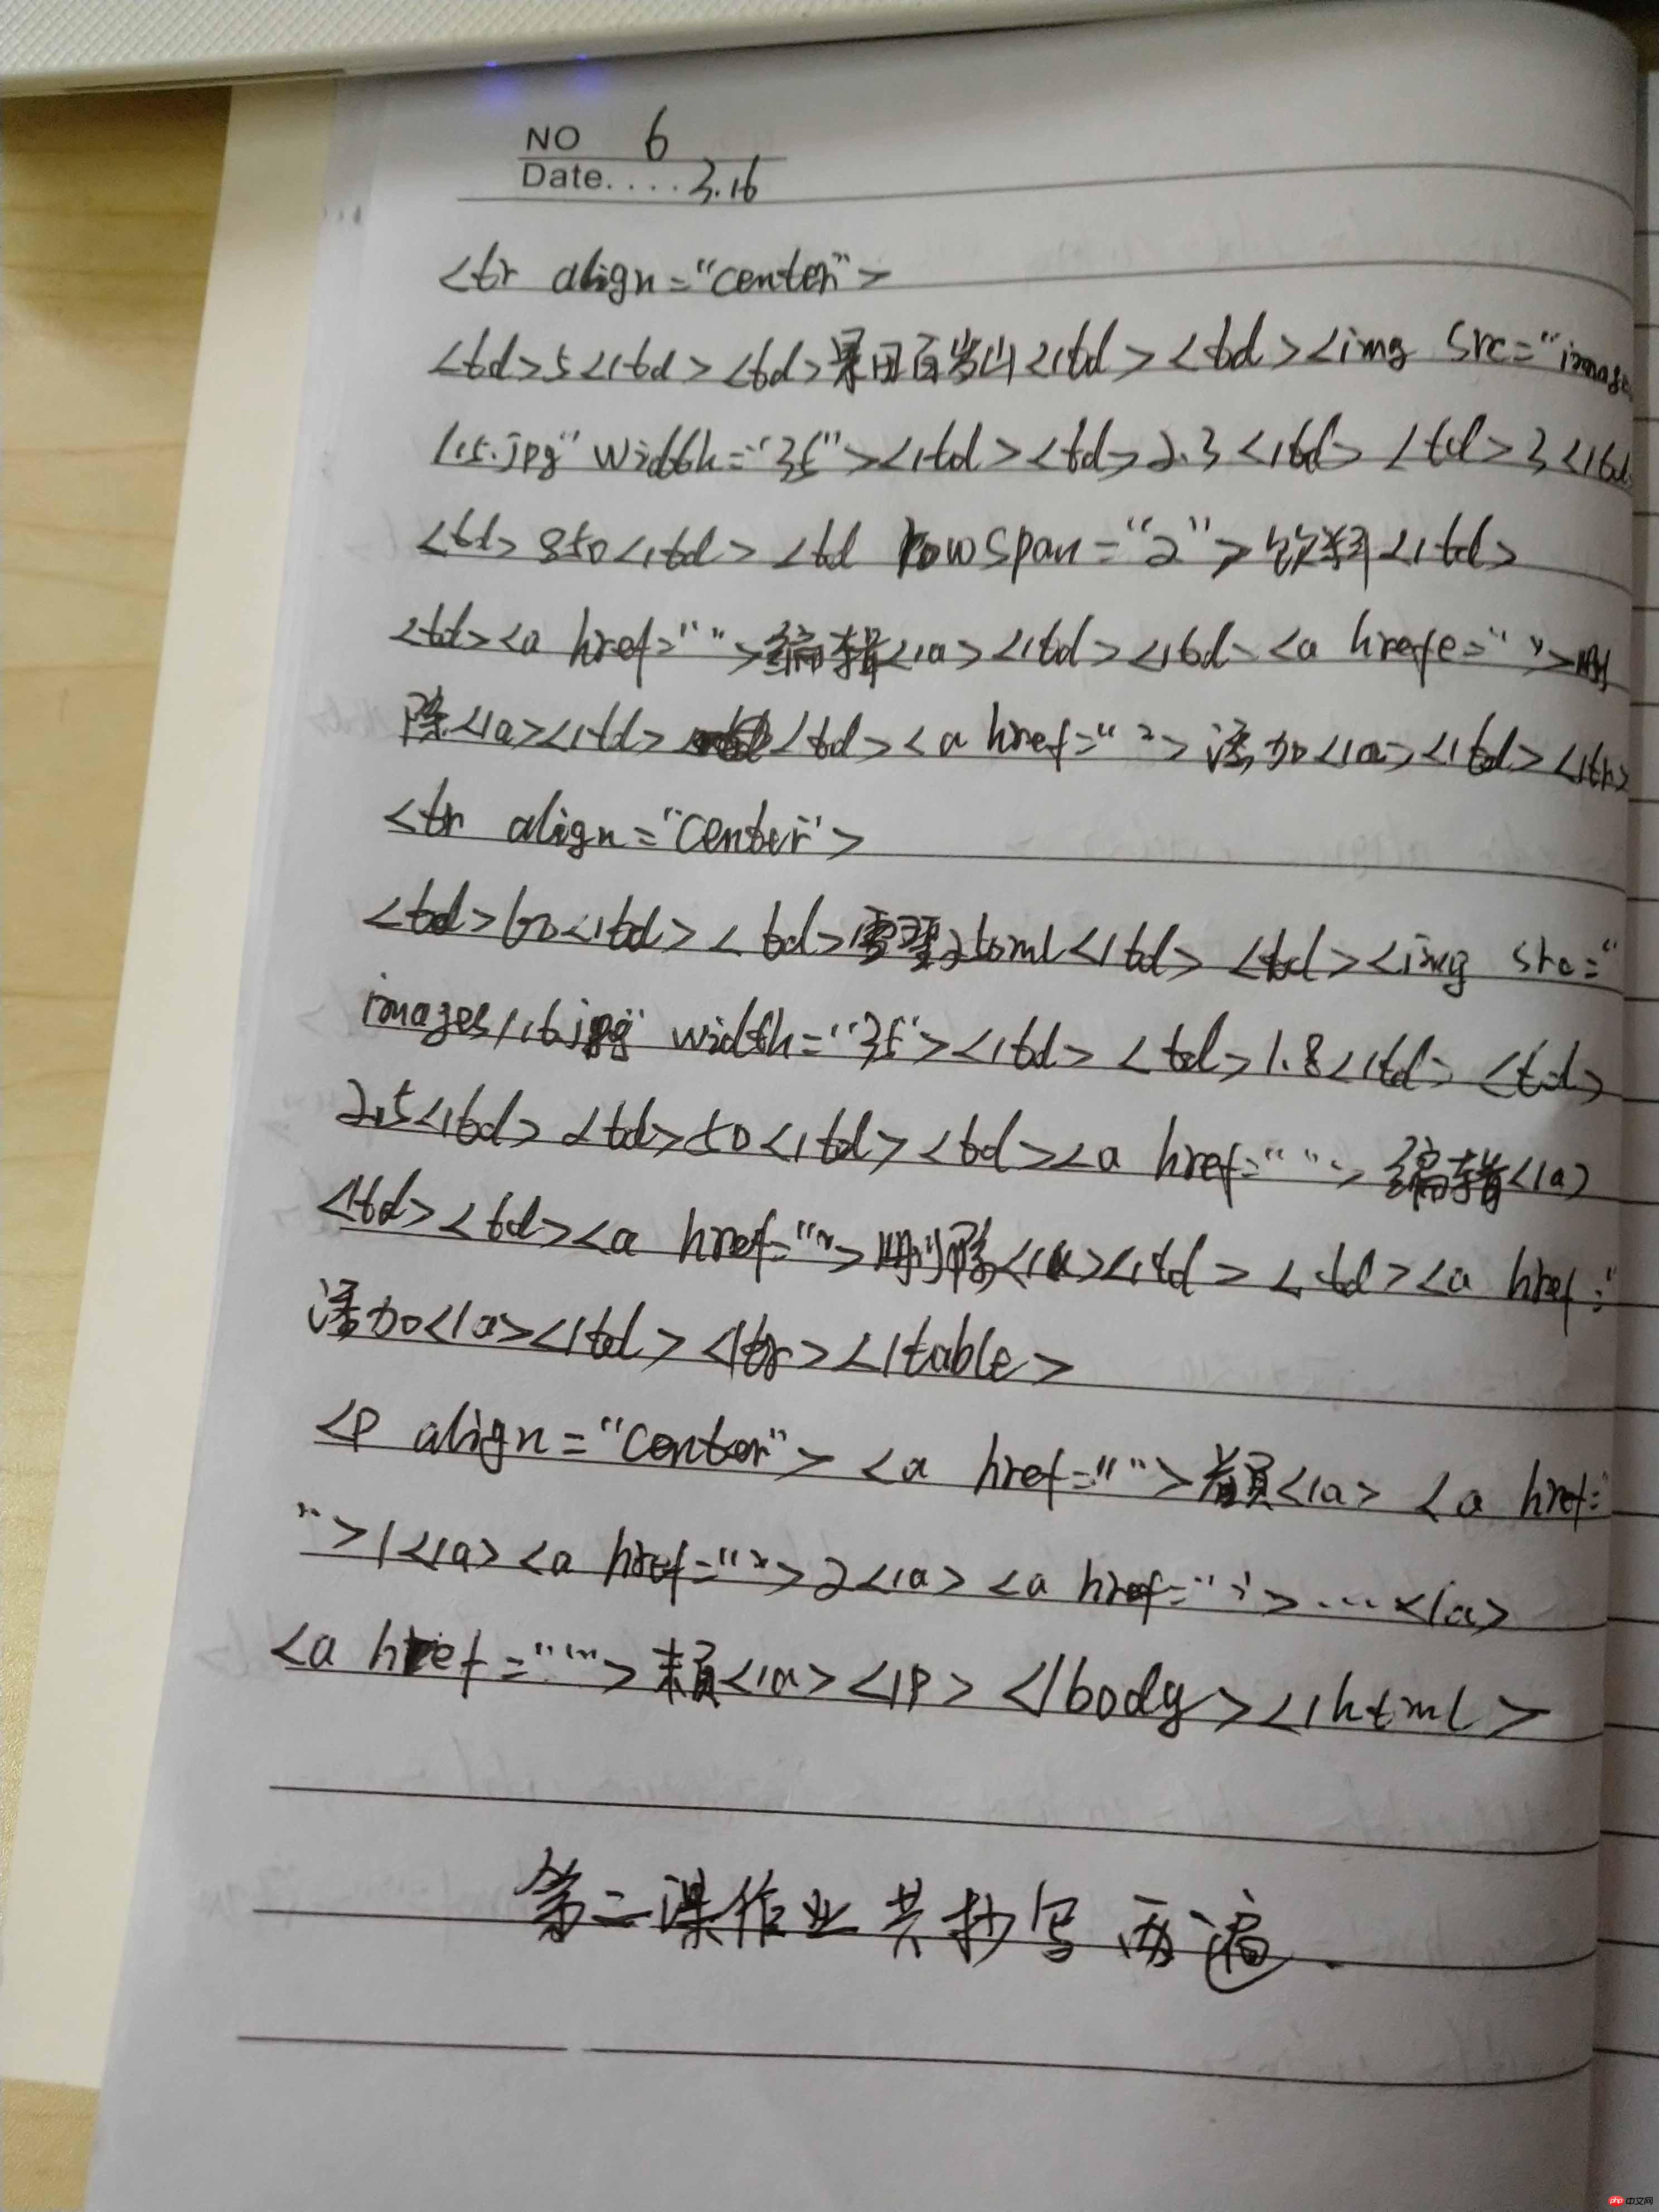 NO 6
Date.... 3.16
<tr align="center">
<td>5</td><td>景田百岁山</td><td><img src="images
/15.jpg" width="35"></td><td>2.3</td><td>3</td>
<td>850</td><td rowspan="2">饮料</td>
<td><a href="">编辑</a></td></td><a hrefe="">删
除</a></td><td><a href="">添加</a></td></tr>
<tr align="center">
<td></td><td>雪碧250ml</td><td><img src="
images/16jpg" width="35"></td><td>1.8</td><td>
2.5</td><td>50</td><td><a href="">编辑</a>
</td><td><a href="">删除</a></td><td><a href="
添加</a></td></tr></table>
<p align="center"><a href="">首页</a><a href=
"">1</a><a href="">2</a><a href="">...</a>
<a href="">末页</a></p></body></html>
第二课作业共抄写两遍.
php 中文网